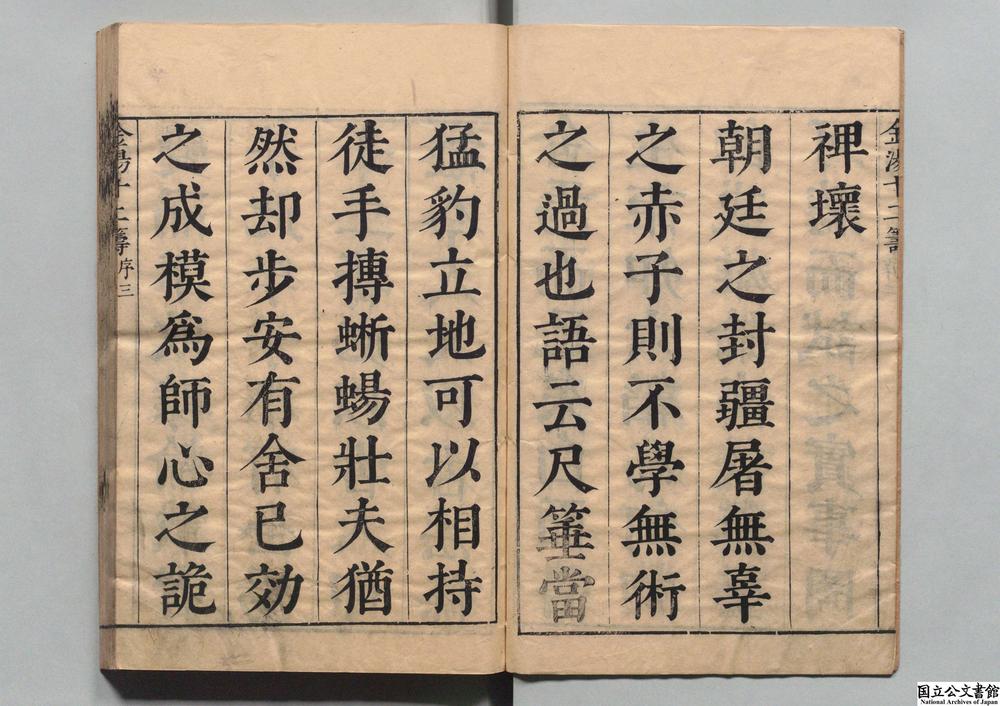 金湯十二籌
裨壞
朝廷之封疆屠無辜
之赤子則不學無術
之過也語云尺箠當
猛豹立地可以相持
徒手摶蜥蜴壯夫猶
然却步安有舍已効
之成模爲師心之詭
金湯十二籌 序三
国立公文書館
National Archives of Japan